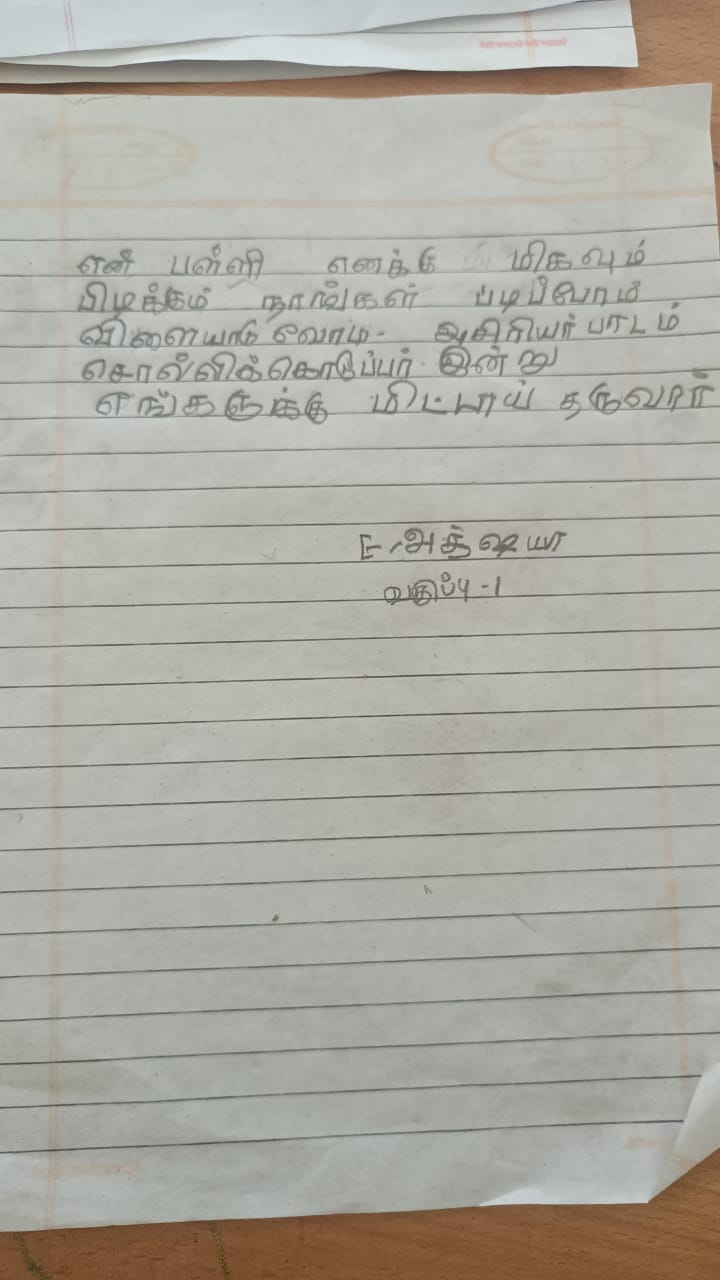 என் பள்ளி எனக்கு மிகவும்
பிடிக்கும் நாங்கள் படிப்வோம்
விளையாடுவோம். ஆசிரியர் பாடம்
சொல்லிக்கொடுப்பர். இன்று
எங்களுக்கு மிட்டாய் தருவார்
E. அக்ஷயா
வகுப்பு - 1